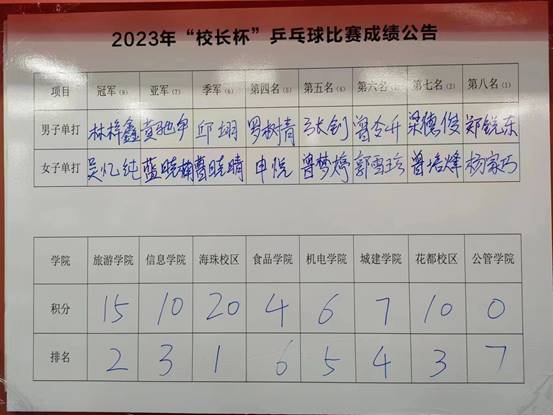 2023年“校长杯”乒乓球比赛成绩公告
项目 冠军(9) 亚军(7) 季军(6) 第四名(5) 第五名(4) 第六名(3) 第七名(2) 第八名(1)
男子单打 林梓鑫 黄驰 邱翊 罗树青 张钊 曾令升 梁德俊 郑锐东
女子单打 吴忆纯 蓝晓楠 曹晓晴 申悦 曾梦婷 郭雪 曾培烽 杨家巧
学院 旅游学院 信息学院 海珠校区 食品学院 机电学院 城建学院 花都校区 公管学院
积分 15 10 20 4 6 7 10 0
排名 2 3 1 6 5 4 3 7